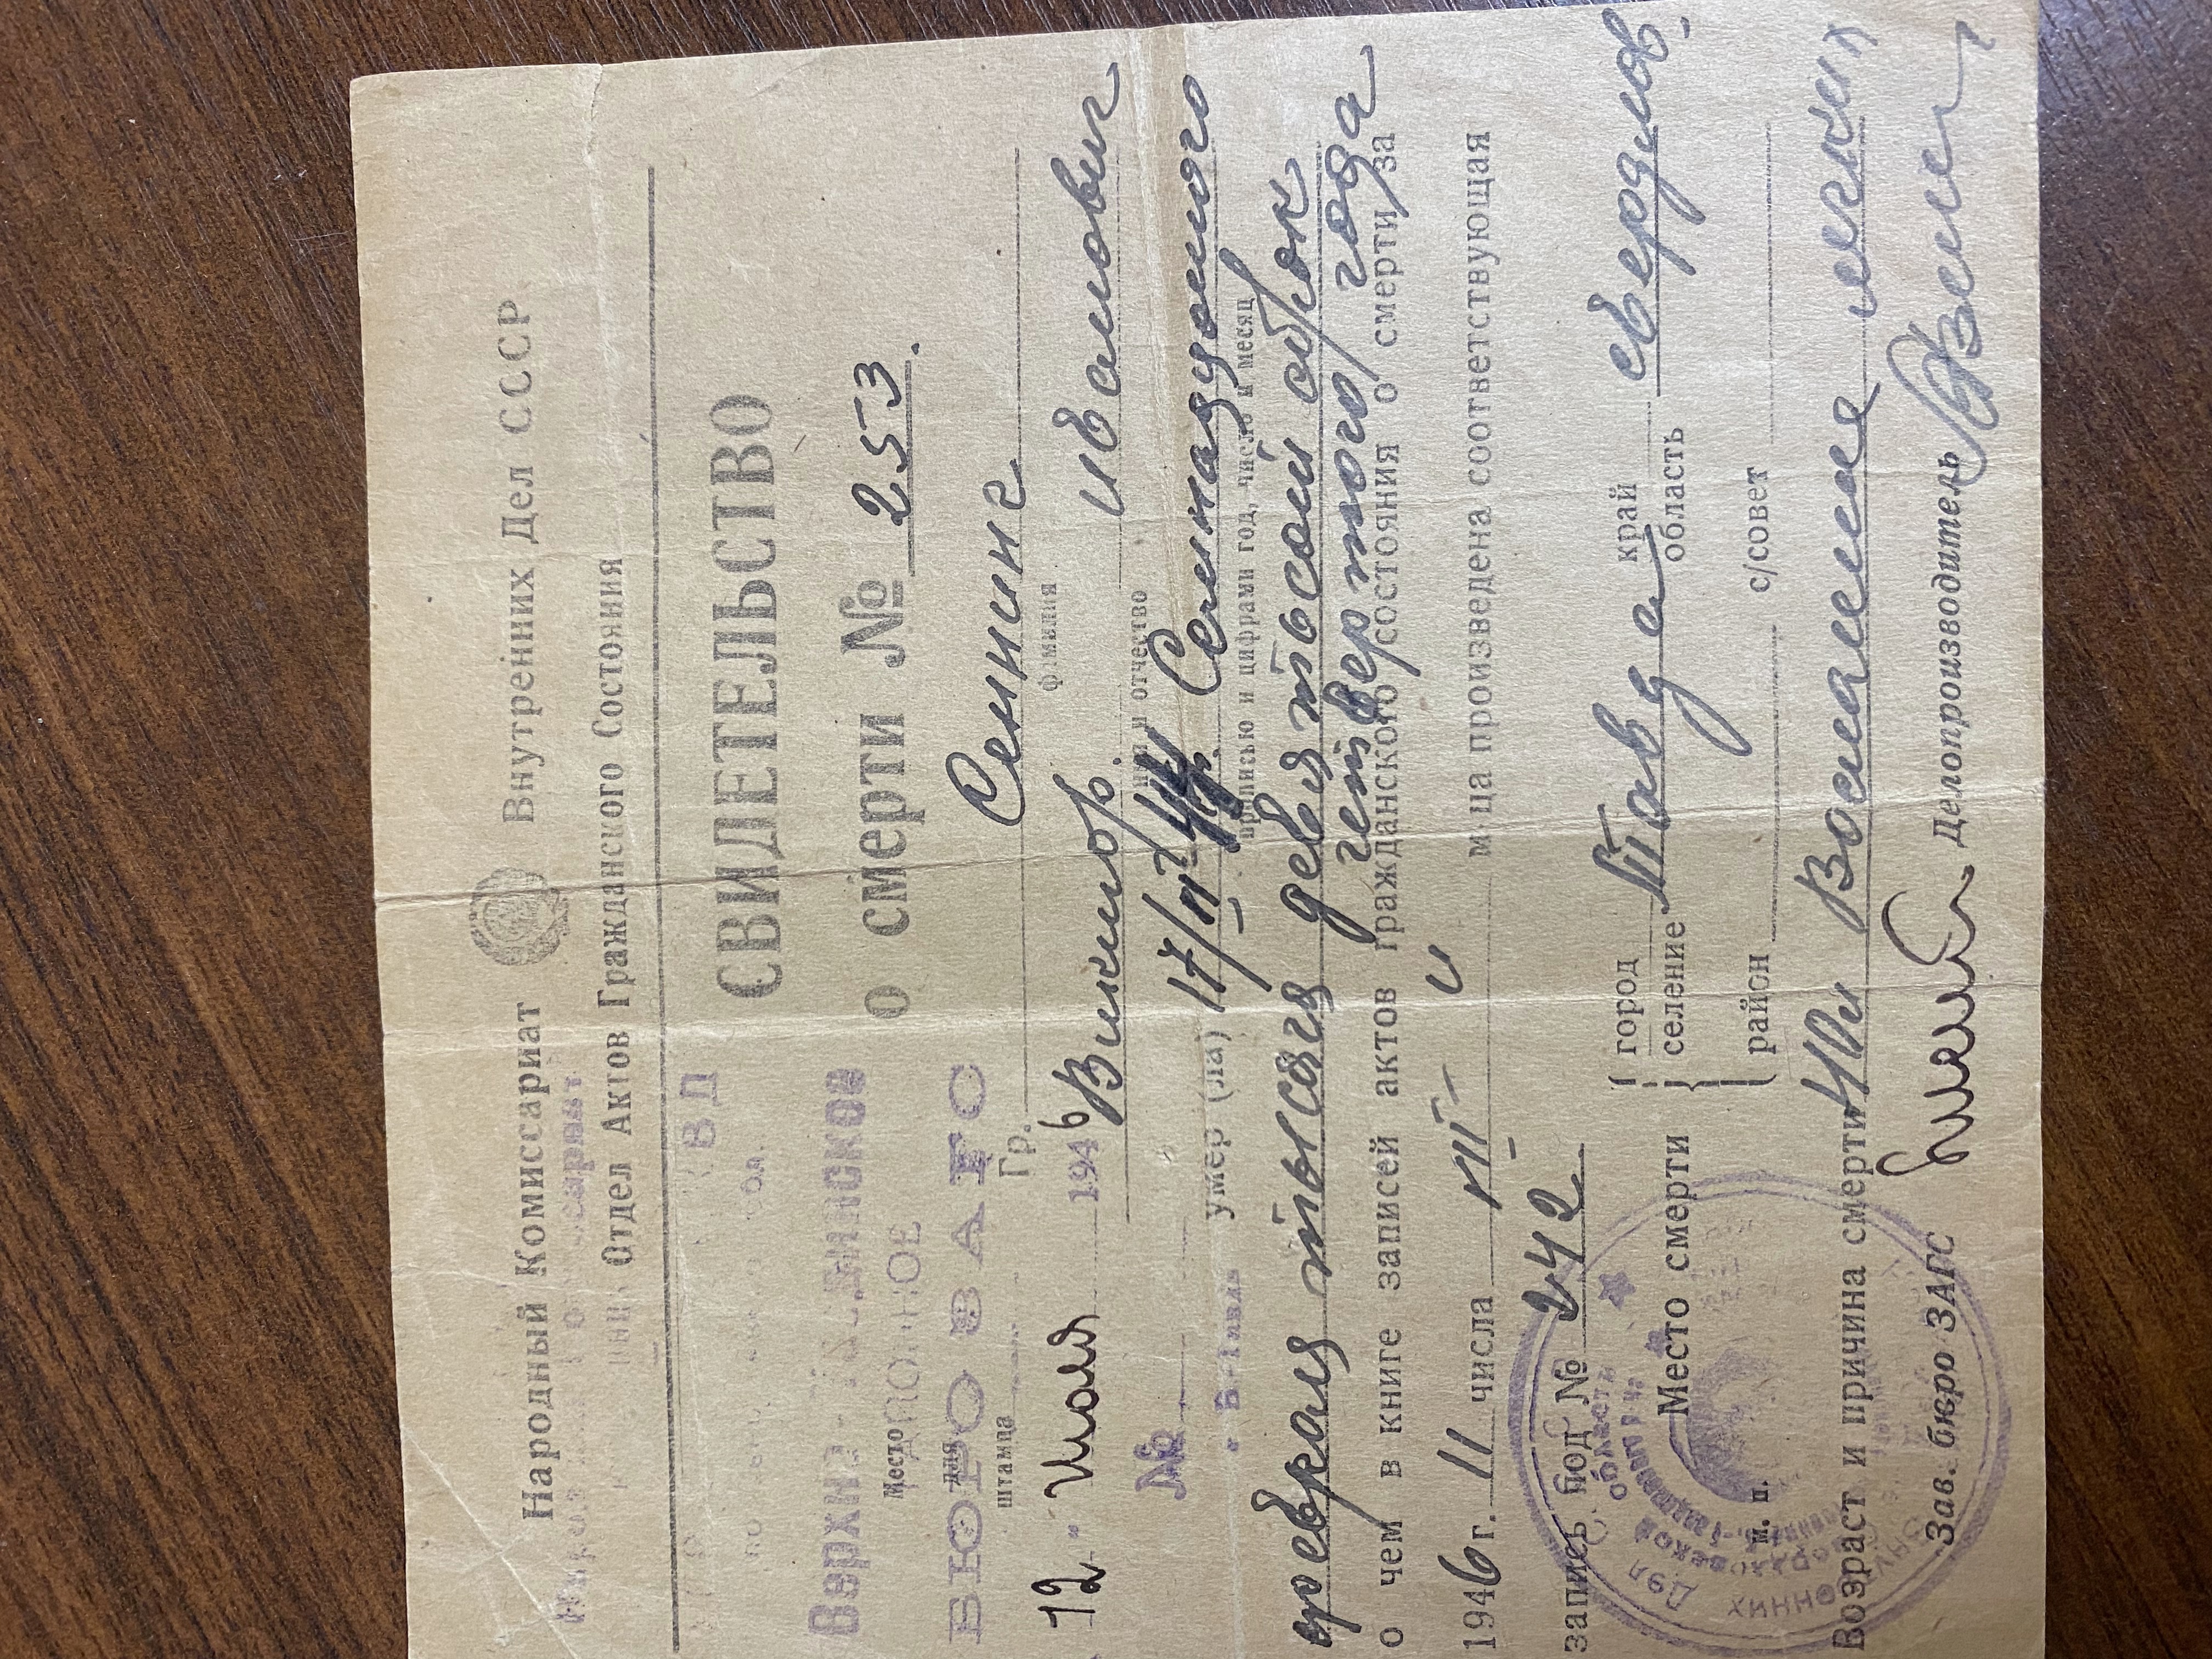 Народный Комиссариат Внутренних Дел СССР
Отдел Актов Гражданского Состояния
СВИДЕТЕЛЬСТВО
ВД
о смерти № 253.
Место
для
штампа
БЮРО ЗАГС
Гр. Сенинг
фамилия
"12" Июля 1946
Виктор. Иванович
имя и отчество
№
умер(ла) 17/II 44г. Семнадцатого
прописью и цифрами год, число и месяц
февраля тысяча девятьсот сорок
четвертого года
о чем в книге записей актов гражданского состояния о смерти за
1946 г. 11 числа VII м-ца произведена соответствующая
запись под № 242.
Место смерти город селение Тавда край область Свердлов.
район с/совет
Возраст и причина смерти Воспаление легких
м. п.
Зав. бюро ЗАГС Делопроизводитель